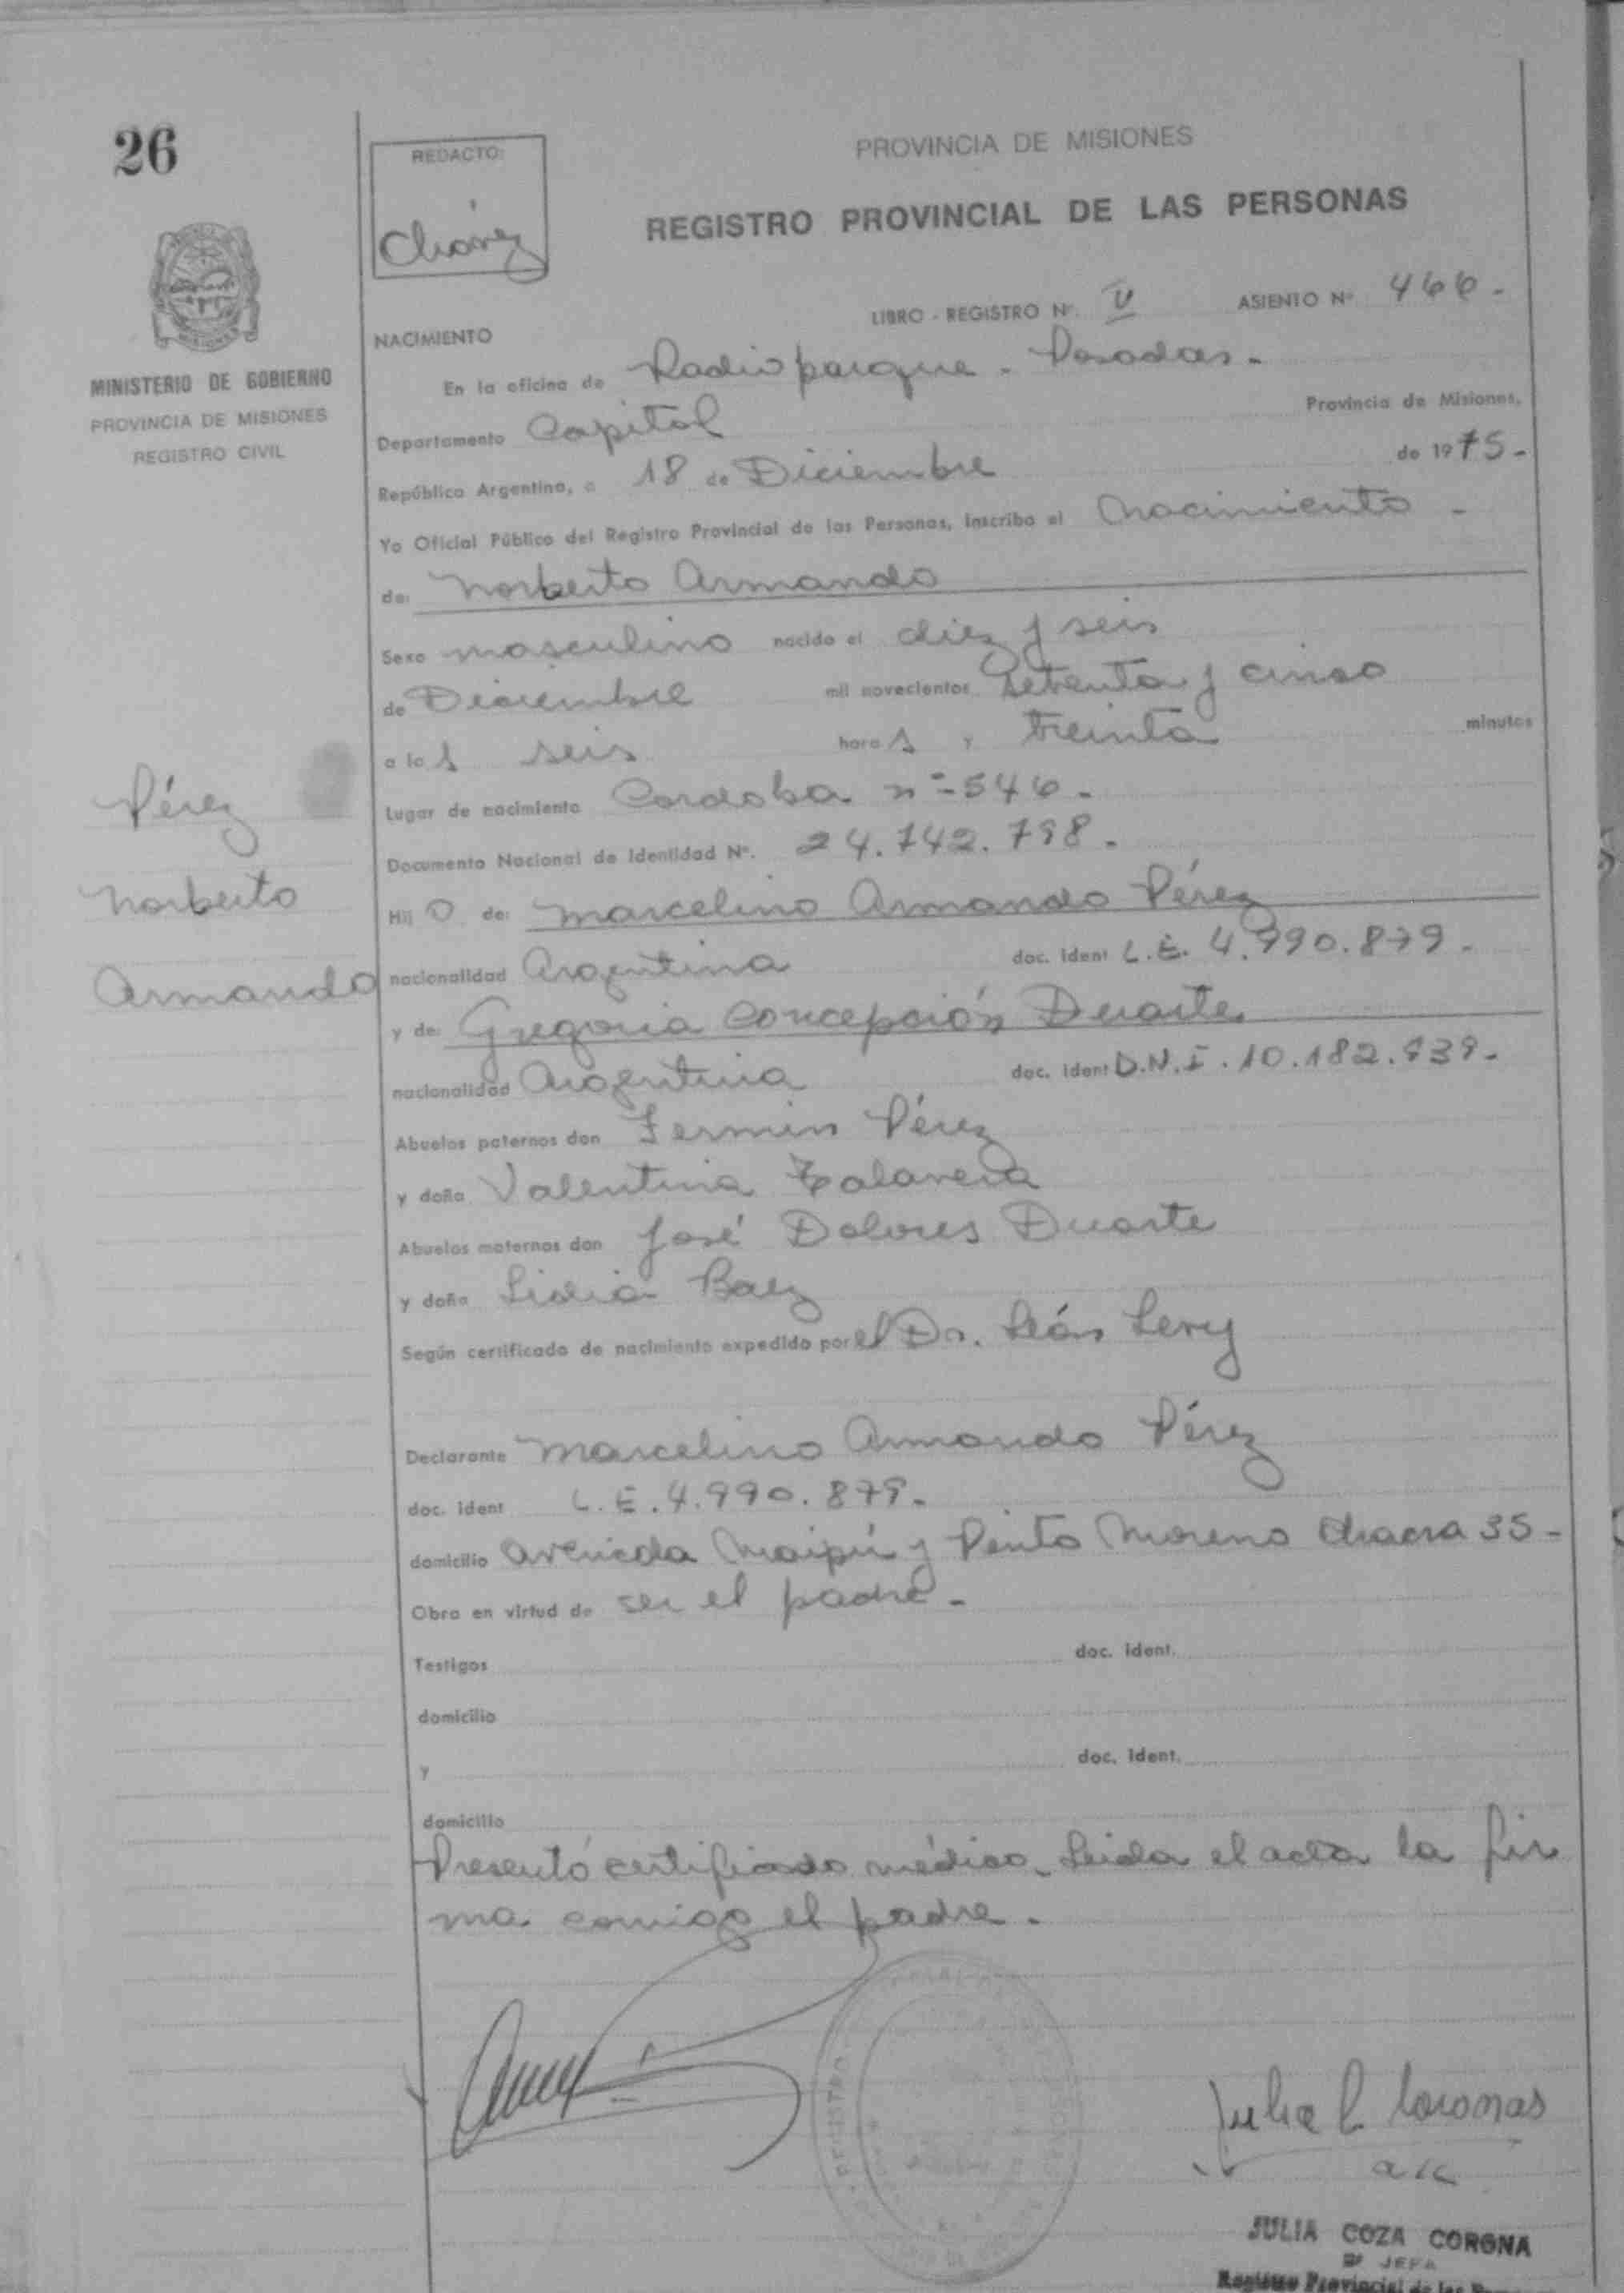 26
REDACTO:
Chávez
PROVINCIA DE MISIONES
REGISTRO PROVINCIAL DE LAS PERSONAS
MINISTERIO DE GOBIERNO
PROVINCIA DE MISIONES
REGISTRO CIVIL
LIBRO - REGISTRO Nº. V ASIENTO Nº 466.-
NACIMIENTO
En la oficina de Radio parque - Posadas -
Departamento Capital Provincia de Misiones,
República Argentina, a 18 de Diciembre de 1975-
Yo Oficial Público del Registro Provincial de las Personas, inscribo el Nacimiento -
de: Norberto Armando
Sexo masculino nacido el diez y seis
de Diciembre mil novecientos setenta y cinco
a las seis horas y treinta minutos
Lugar de nacimiento Cordoba nº 546-
Documento Nacional de Identidad Nº. 24.742.798.-
Pérez
Norberto
Armando
Hij o de: Marcelino Armando Pérez
nacionalidad Argentina doc. ident L.E. 4.990.879-
y de: Gregoria Concepción Duarte
nacionalidad Argentina doc. ident D.N.I. 10.182.939-
Abuelos paternos don Fermin Pérez
y doña Valentina Talavera
Abuelos maternos don José Dolores Duarte
y doña Lidia Baez
Según certificado de nacimiento expedido por el Dr. León Levy
Declarante Marcelino Armando Pérez
doc. ident L.E. 4.990.879-
domicilio Avenida Maipú y Pinto Moreno Chacra 35-
Obra en virtud de ser el padre-
Testigos doc. ident.
domicilio
y doc. ident.
domicilio
Presentó certificado médico. Leida el acta la fir
ma conmigo el padre-
REGISTRO
Julia C. Coronas
a/c
JULIA COZA CORONA
JEFA
Registro Provincial de las